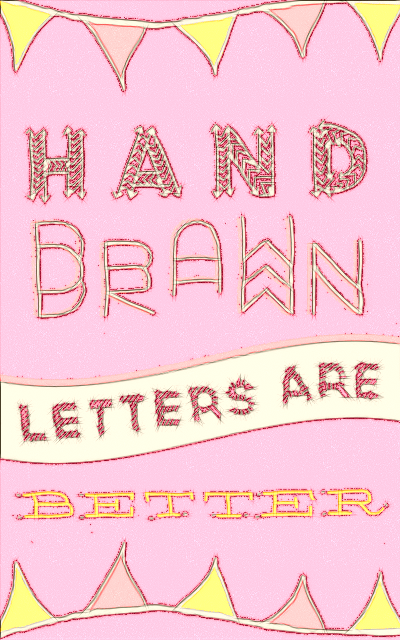 HAND
DRAWN
LETTERS ARE
BETTER